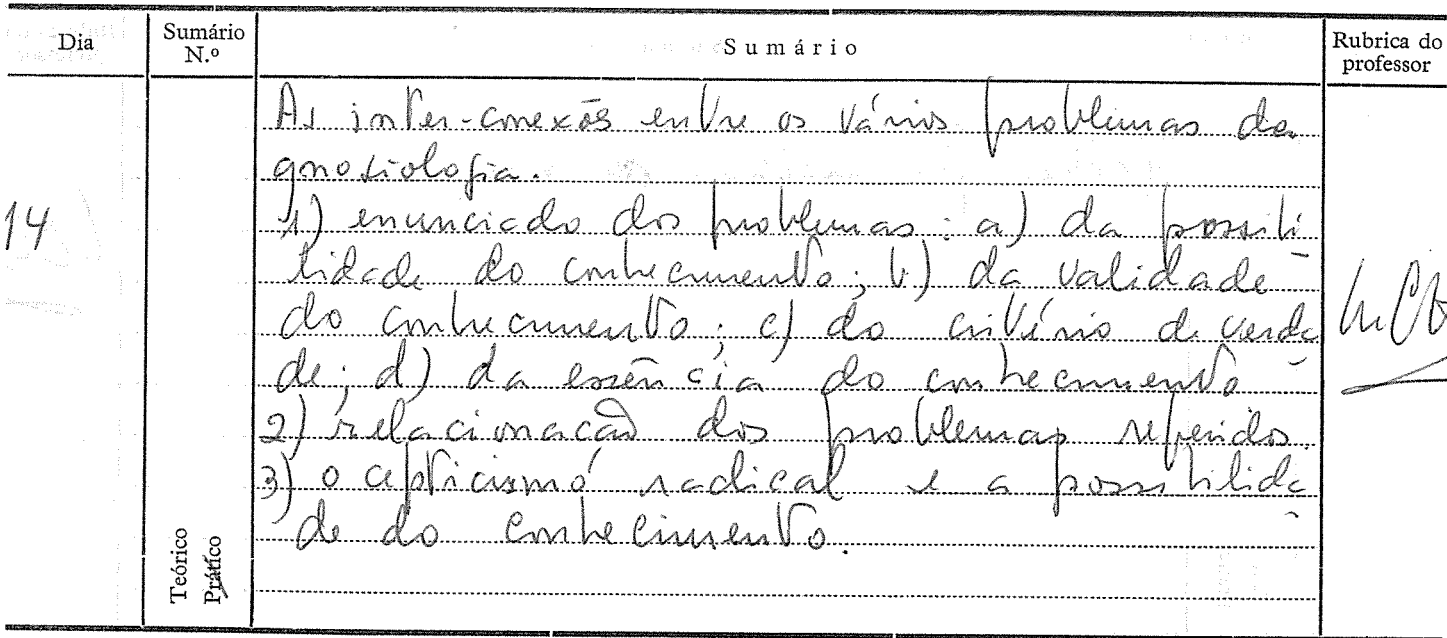 Dia
Sumário N.º
Sumário
Rubrica do professor
14
As inter-conexões entre os vários problemas da
gnosiologia.
1) enunciado dos problemas: a) da possibi-
lidade do conhecimento; b) da validade
do conhecimento; c) do critério de verda-
de; d) da essência do conhecimento
2) relacionação dos problemas referidos.
3) o cepticismo radical e a possibilida-
de do conhecimento.
Teórico
Prático